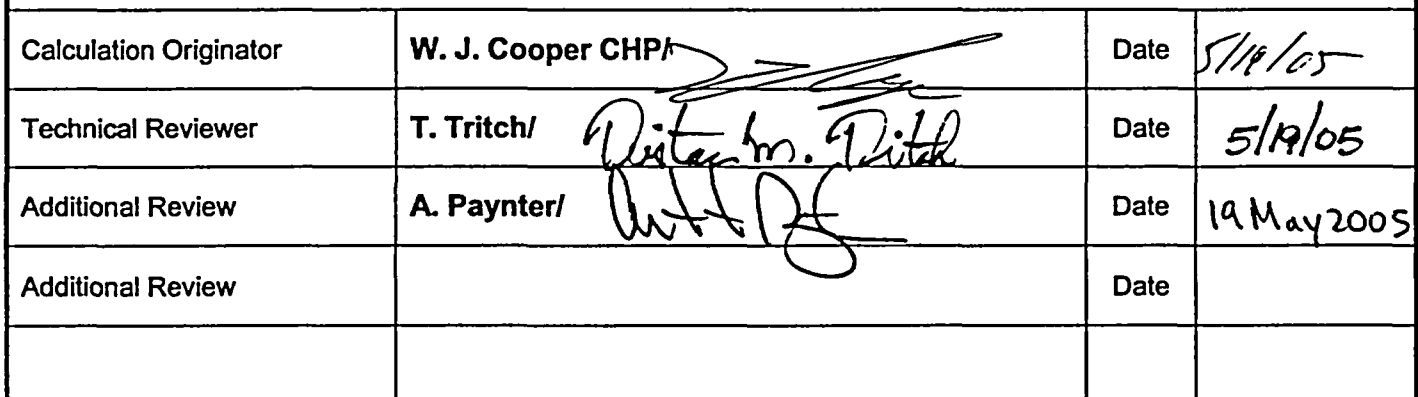 Calculation Originator W. J. Cooper CHP/ Date 5/19/05
Technical Reviewer T. Tritch/ Date 5/19/05
Additional Review A. Paynter/ Date 19 May 2005
Additional Review Date